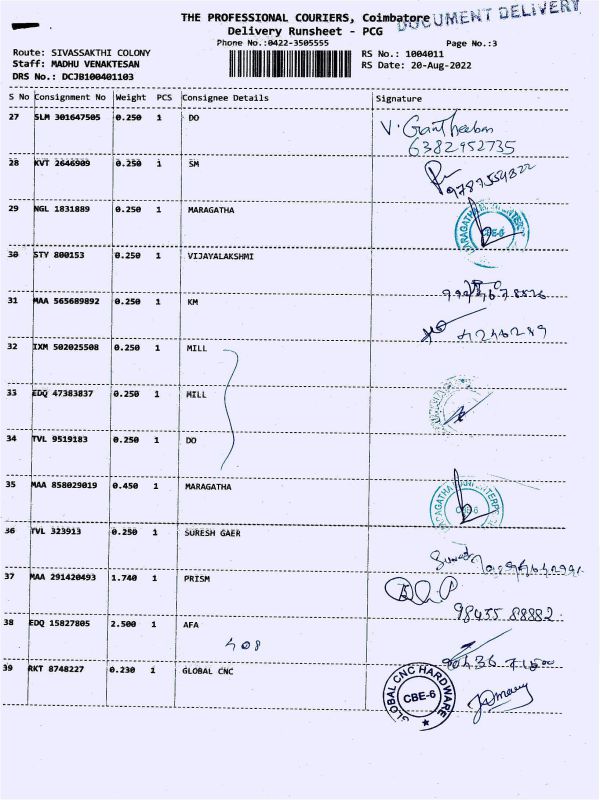 THE PROFESSIONAL COURIERS, Coimbatore
DOCUMENT DELIVERY
Delivery Runsheet - PCG
Phone No.:0422-3505555
Page No.:3
Route: SIVASSAKTHI COLONY
RS No.: 1004011
Staff: MADHU VENAKTESAN
RS Date: 20-Aug-2022
DRS No.: DCJB100401103
S No Consignment No Weight PCS Consignee Details Signature
27 SLM 301647505 0.250 1 DO
6382952735
28 KVT 2646909 0.250 1 SM
29 NGL 1831889 0.250 1 MARAGATHA
30 STY 800153 0.250 1 VIJAYALAKSHMI
31 MAA 565689892 0.250 1 KM
32 IXM 502025508 0.250 1 MILL
33 EDQ 47383837 0.250 1 MILL
34 TVL 9519183 0.250 1 DO
35 MAA 858029019 0.450 1 MARAGATHA
36 TVL 323913 0.250 1 SURESH GAER
37 MAA 291420493 1.740 1 PRISM
98455 88882
38 EDQ 15827805 2.500 1 AFA
408
39 RKT 8748227 0.230 1 GLOBAL CNC
GLOBAL CNC HARDWARE
CBE-6